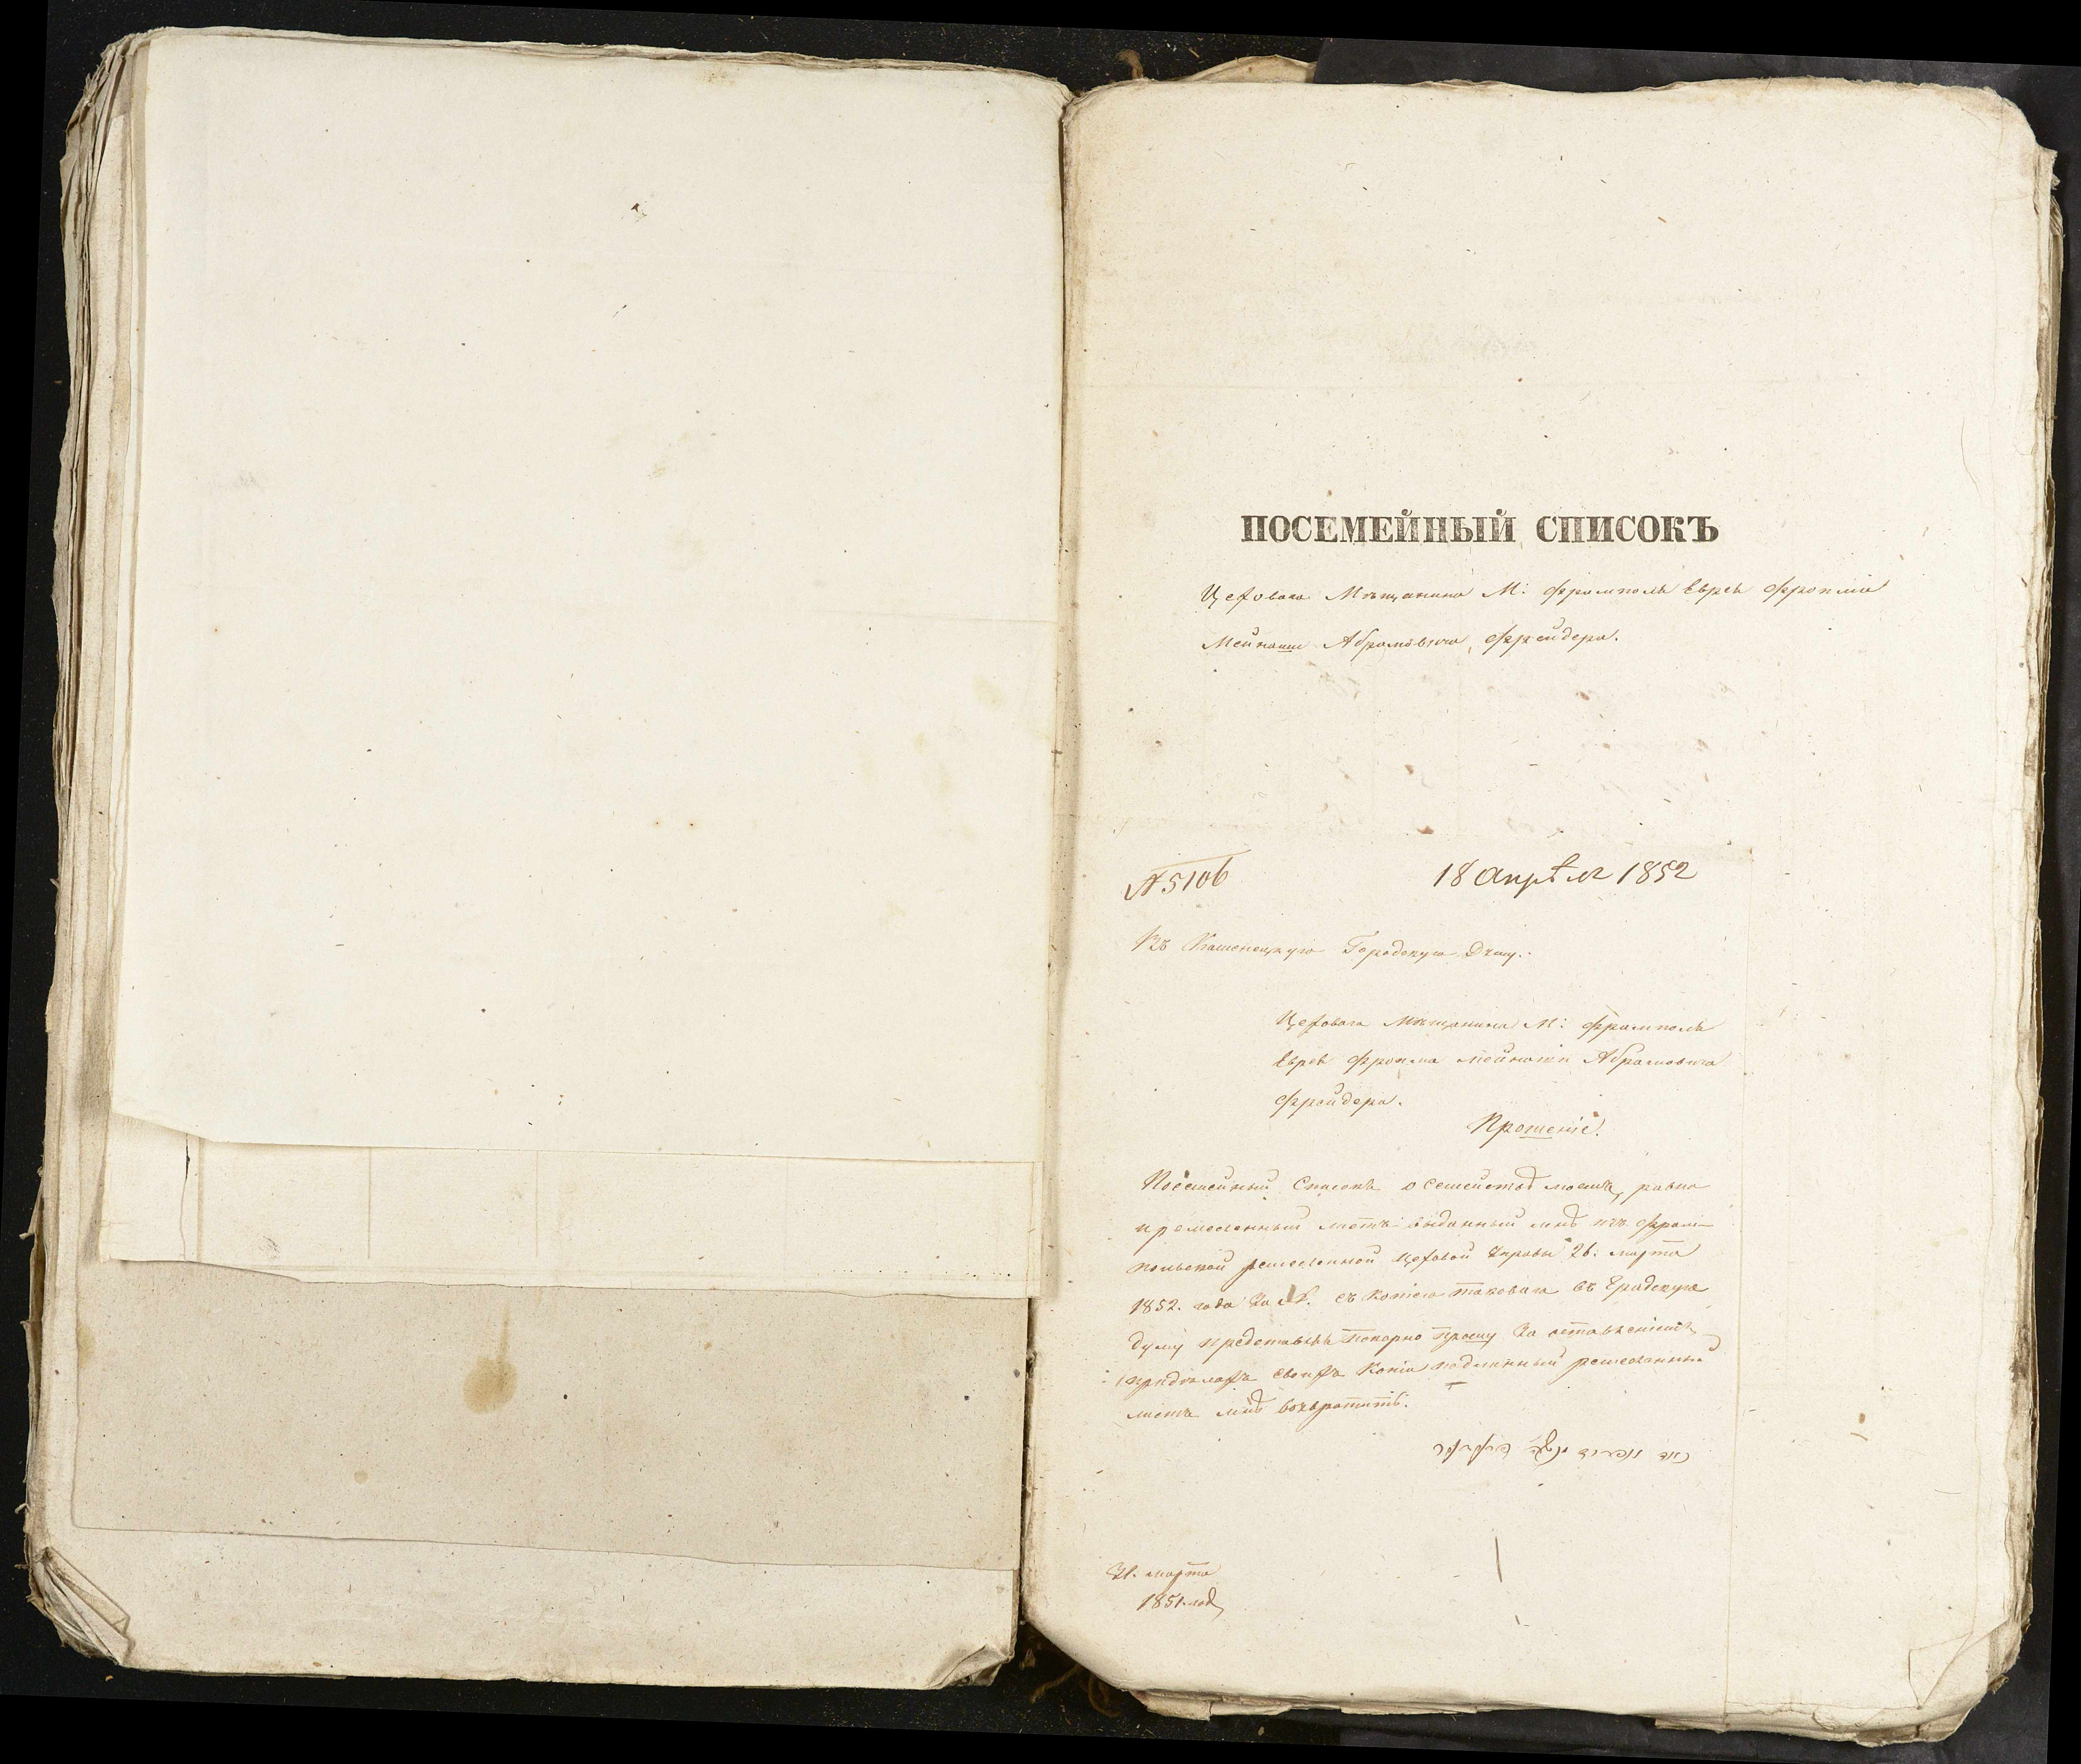 ПОСЕМЕЙНЫЙ СПИСОКЪ
Цехового Мѣщанина М: Фрамполя Еврея Фроима
Меинаши Абрамовича Фрейдера.
№ 5106 18 Апрѣля 1852
Въ Каменецкую Городскую Думу.
Цехового Мѣщанина М: Фрамполя
Еврея Фроима Мейнаши Абрамовича
Фрейдера.
Прошеніе.
Посемейный Списокъ о семействѣ моемъ, равно
и ремесленный листъ выданный мнѣ изъ Фрам-
польской ремесленной Цеховой Управы 26: марта
1852. года За №. съ Копіею таковаго въ Градскую
Думу представляя покорно прошу За оставленіемъ
при дѣлахъ своихъ Копіи подлинный ремесленный
листъ мнѣ возвратить.
марта
1851 года